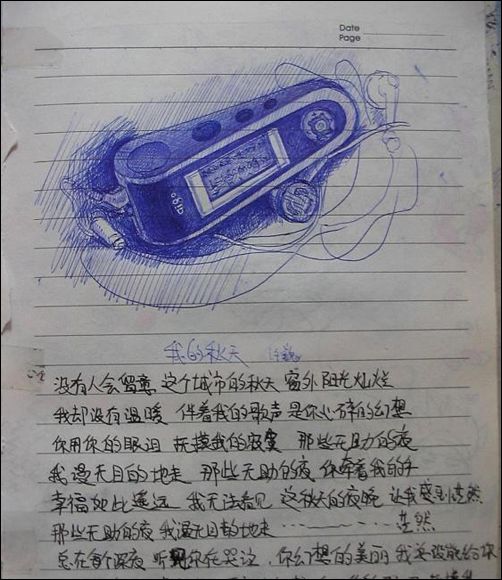 Date
Page
aigo
我的秋天 许巍
没有人会留意 这个城市的秋天 窗外阳光灿烂
我却没有温暖 伴着我的歌声 是你心碎的幻想
你用你的眼泪 抚摸我的寂寞 那些无助的夜
我漫无目的地走 那些无助的夜 你牵着我的手
幸福如此遥远 我无法看见 这秋天的夜晚 让我感到茫然
那些无助的夜 我漫无目的地走 …… 茫然
总在每个深夜 听见你在哭泣 你幻想的美丽 我没能给你